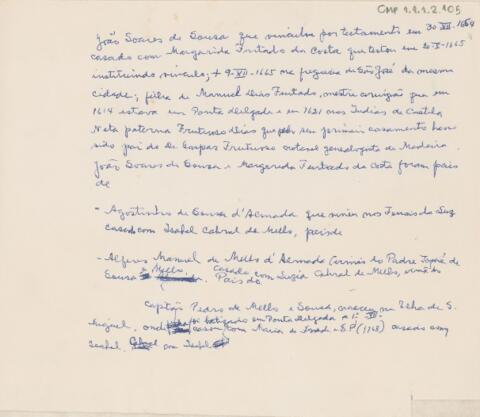 CMP 1.1.1.2.105
João Soares de Sousa que vinculou por testamento em 30-XII-1664
casado com Margarida Furtado da Costa que testou em 20-I-1665
instituindo vínculo; + 9-VII-1665 na freguesia de São José da mesma
cidade; filha de Manuel Dias Furtado, mestre cirurgião que em
1614 estava em Ponta Delgada e em 1621 nas Indias de Castela
Neta paterna Frutuoso Dias que seu primeiro casamento
sido pai do Dr. Gaspar Frutuoso genealogista da Madeira.
João Soares de Sousa e Margarida Furtado da Costa foram pais
de
- Agostinho de Sousa d'Almada que viveu nos Fenais da Luz
casado com Isabel Cabral de Mello, pais de
- Alferes Manuel de Mello d'Almada (irmão do Padre Tomé de
Sousa e Mello casado com Luzia Cabral de Mello,
Pais do
Capitão Pedro de Mello e Sousa, nasceu na Ilha de S.
Miguel, onde foi batizado em Ponta Delgada a 1-
casou com Maria de (1748) casado com
Isabel